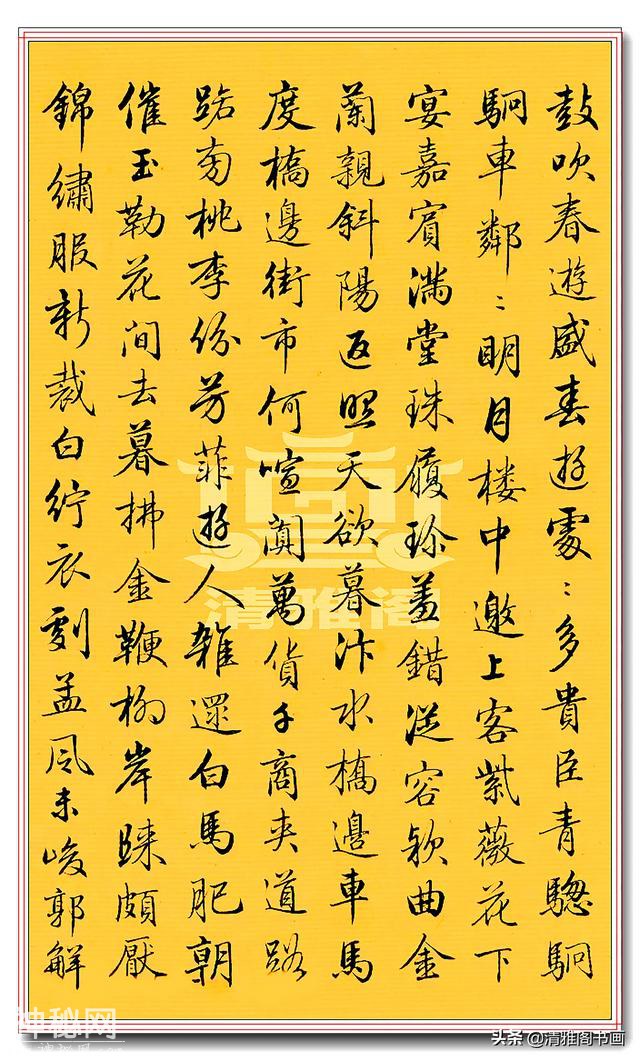 鼓吹春遊盛春遊處〻多貴臣青驄駉
駉車鄰〻明月楼中邀上客紫薇花下
宴嘉賓滿堂珠履珍羞錯從容欵曲金
蘭親斜陽返照天欲暮汴水橋邊車馬
度橋邊街市何喧闐萬貨千商夾道路
路旁桃李份芳菲遊人雜遝白馬肥朝
催玉勒花间去暮拂金鞭柳岸歸頗厭
錦繡服新裁白紵衣劇孟風未峻郭解
清雅阁
神秘网
头条@清雅阁书画